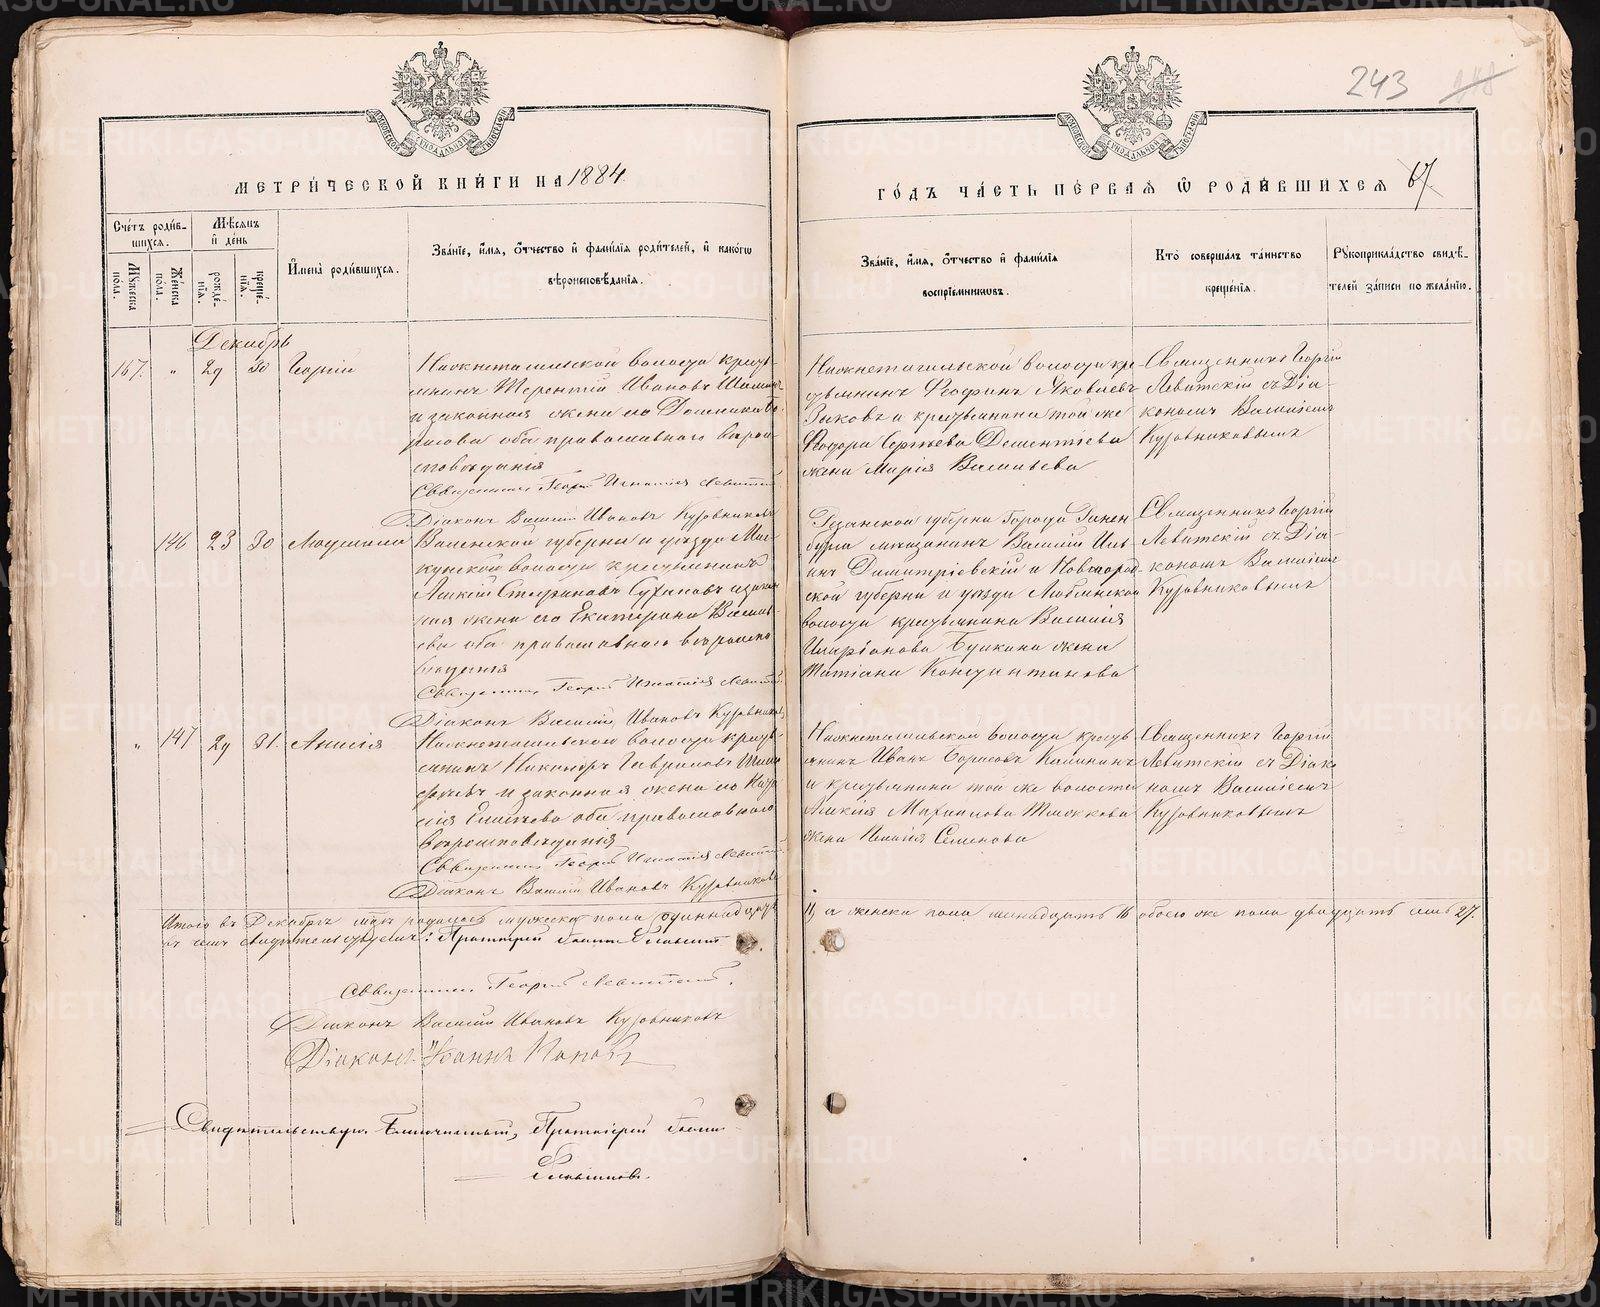 243
МЕТРИЧЕСКОЙ КНИГИ НА 1884
ГОДЪ ЧАСТЬ ПЕРВАЯ Ѡ РОДИВШИХСЯ 67
Счетъ родив-
шихся.
Мѣсяцъ
и день
Мужеска
пола.
Женска
пола.
рожде-
нїя.
креще-
нїя.
Имена родившихся.
Званїе, имя, отчество и фамилїя родителей, и какогѡ
вѣроисповѣданїя.
Званїе, имя, отчество и фамилїя
воспрїемниковъ.
Кто совершалъ таинство
крещенїя.
Рукоприкладство свидѣ-
телей записи по желанїю.
Декабрь
167. " 29 30 Георгій
Нижнетагильской волости кресть-
янинъ Терентій Ивановъ
и законная жена его Домника Бо-
рисова оба православнаго вѣрои-
сповѣданія
Священникъ Георгій Игнатіевъ Левитскій
Діаконъ Василій Ивановъ Кузовниковъ
Нижнетагильской волости кре-
стьянинъ Феофанъ Яковлевъ
Зыковъ и крестьянина той же
Федора Сергѣева Дементіева
жена Марія Васильева
Священникъ Георгій
Левитскій съ Діа-
кономъ Василіемъ
Кузовниковымъ
146 23 30 Людмила
губерніи и уѣзда
волости крестьянинъ
Алексій Стефановъ Сухановъ и закон-
ная жена его Екатерина Василь-
ева оба православнаго вѣроиспо-
вѣданія
Священникъ Георгій Игнатіевъ Левитскій
Діаконъ Василій Ивановъ Кузовниковъ
Рязанской губерніи города Ранен-
бурга мѣщанинъ Василій Иль-
инъ Димитріевскій и Новгород-
ской губерніи и уѣзда
волости крестьянина Василія
Иларіонова Букина жена
Татіана Константинова
Священникъ Георгій
Левитскій съ Діа-
кономъ Василіемъ
Кузовниковымъ
" 147 29 31. Анисія
Нижнетагильской волости кресть-
янинъ Никаноръ Гавриловъ
и законная жена его
Елисѣева оба православнаго
вѣроисповѣданія
Священникъ Георгій Игнатіевъ Левитскій
Діаконъ Василій Ивановъ Кузовниковъ
Нижнетагильской волости кресть-
янинъ Иванъ Борисовъ Калининъ
и крестьянина той же волости
Алексія
жена Семенова
Священникъ Георгій
Левитскій съ Діако-
номъ Василіемъ
Кузовниковымъ
Итого въ Декабрѣ родилось мужеска пола одиннадцать
11, а женска пола шестнадцать 16 обоего же пола двадцать семь 27.
въ чемъ свидѣтельствуемъ: Протоіерей Іоаннъ
Священникъ Георгій Левитскій.
Діаконъ Василій Ивановъ Кузовниковъ
Діаконъ Іоаннъ Поповъ
Свидѣтельствую Благочинный, Протоіерей Іоаннъ
METRIKI.GASO-URAL.RU